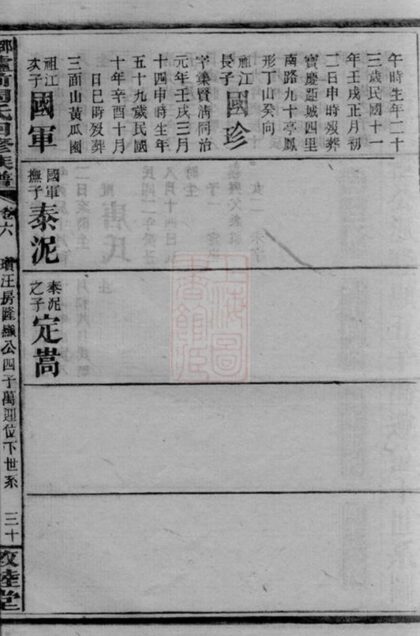 午時生年二十
三歲民國十一
年壬戌正月初
二日申時歿葬
寶慶莊城四里
南路九十亭鳳
形丁山癸向
祖江長子 國珍
字集賢清同治
元年壬戌三月
十四申時生年
五十九歲民國
十年辛酉十月
日巳時歿葬
三面山黃瓜園
祖江次子 國軍
國軍撫子 泰泥
泰泥之子 定嵩
卷六
房 公四子萬理位下世系
三十
敦陸堂
上海圖書館藏